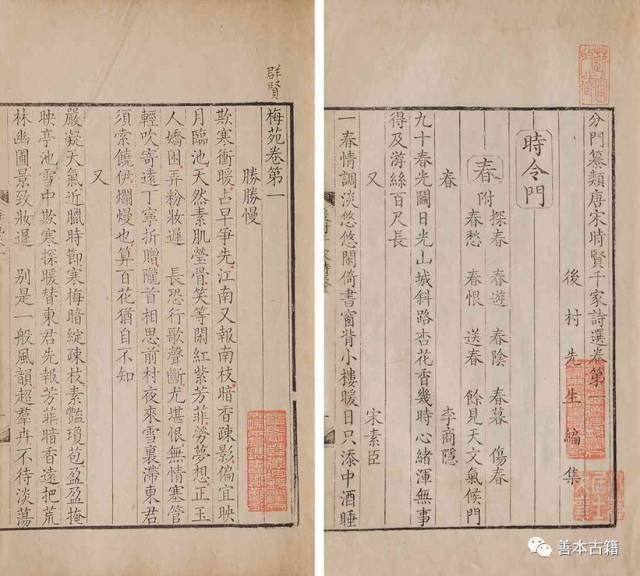 分門纂類唐宋時賢千家詩選卷第一
後村先生編集
時令門
春附
探春 春遊 春陰 春暮 傷春
春愁 春恨 送春 餘見天文氣候門
春 李商隱
九十春光圖日光山城斜路杏花香幾時心緒渾無事
得及游絲百尺長
又 宋素臣
一春情調淡悠悠閑倚書窗背小樓暖日只添中酒睡
群賢
梅苑卷第一
勝勝慢
欺寒衝暖占早爭先江南又報南枝暗香疎影偏宜映
月臨池天然素肌瑩骨笑等閑紅紫芳菲勞夢想正玉
人嬌困弄粉妝遲 長恐行歌聲斷尤堪恨無情塞管
輕吹寄遠丁寧折贈隴首相思前村夜來雪裏滯東君
須索饒伊爛熳也算百花猶自不知
又
嚴凝天氣近臘時節寒梅暗綻疎枝素豔瓊苞盈盈掩
映亭池雪中欺寒探暖替東君先報芳菲暗香遠把荒
林幽圃景致妝遲 別是一般風韻超羣卉不待淡蕩
善本古籍